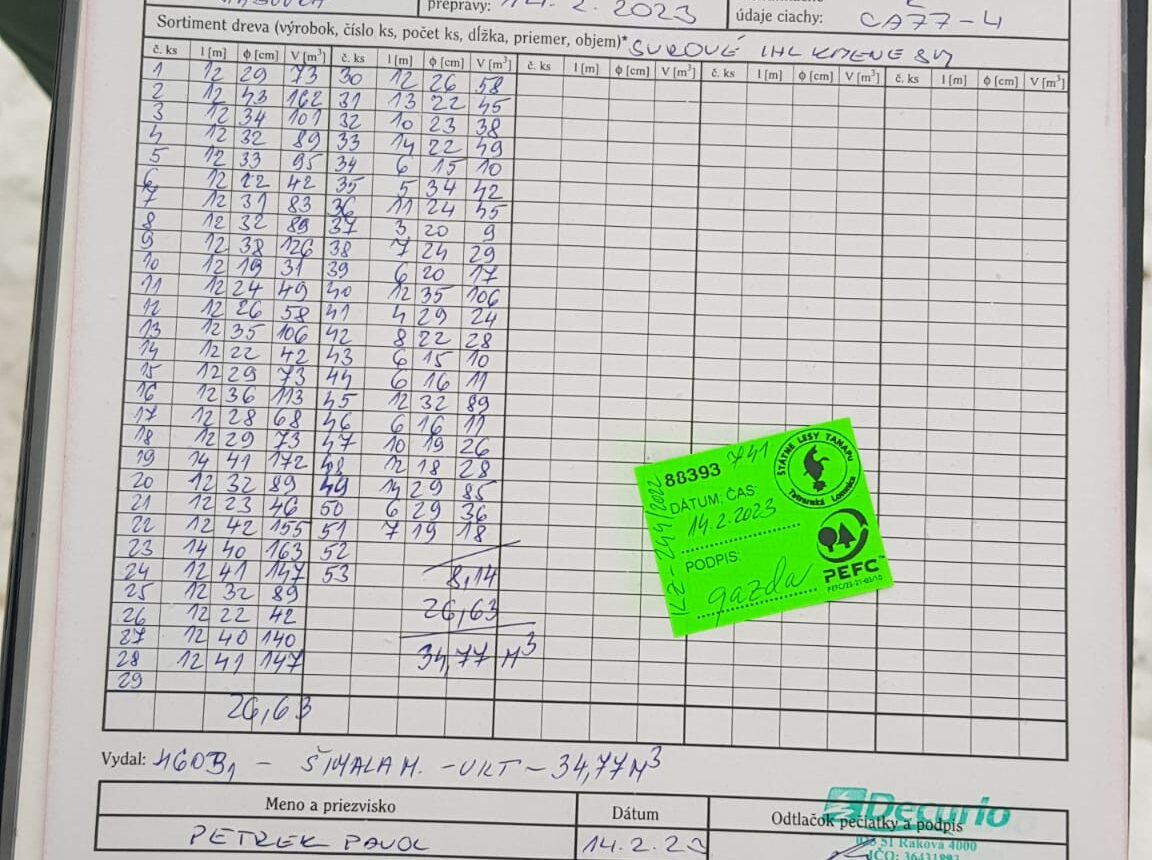 prepravy: 14. 2. 2023
údaje ciachy: CA77-4
Sortiment dreva (výrobok, číslo ks, počet ks, dĺžka, priemer, objem)* SUROVÉ IHL KMENE
č. ks l [m] ϕ [cm] V [m³] č. ks l [m] ϕ [cm] V [m³] č. ks l [m] ϕ [cm] V [m³] č. ks l [m] ϕ [cm] V [m³] č. ks l [m] ϕ [cm] V [m³]
1 12 29 73 30 12 26 58
2 12 43 162 31 13 22 45
3 12 34 101 32 10 23 38
4 12 32 89 33 14 22 49
5 12 33 95 34 6 15 10
6 12 22 42 35 5 34 42
7 12 31 83 36 11 24 45
8 12 32 89 37 3 20 9
9 12 38 126 38 7 24 29
10 12 19 31 39 6 20 17
11 12 24 49 40 12 35 106
12 12 26 58 41 4 29 24
13 12 35 106 42 8 22 28
14 12 22 42 43 6 15 10
15 12 29 73 44 6 16 11
16 12 36 113 45 12 32 89
17 12 28 68 46 6 16 11
18 12 29 73 47 10 19 26
19 14 41 172 48 12 18 28
20 12 32 89 49 14 29 85
21 12 23 46 50 6 29 36
22 12 42 155 51 7 19 18
23 14 40 163 52
24 12 41 147 53 8,14
25 12 32 89
26 12 22 42 26,63
27 12 40 140
28 12 41 147 34,77 M³
29
26,63
88393 741
ŠTÁTNE LESY TANAPU
Tatranská Lomnica
DÁTUM: ČAS:
14.2.2023
PODPIS:
gazda
PEFC™
Vydal: 460B1 - ŠIMALA M. - VKT - 34,77 M³
Meno a priezvisko Dátum Odtlačok pečiatky a podpis
PETREK PAVOL 14.2.23
Decurio
Raková 4000